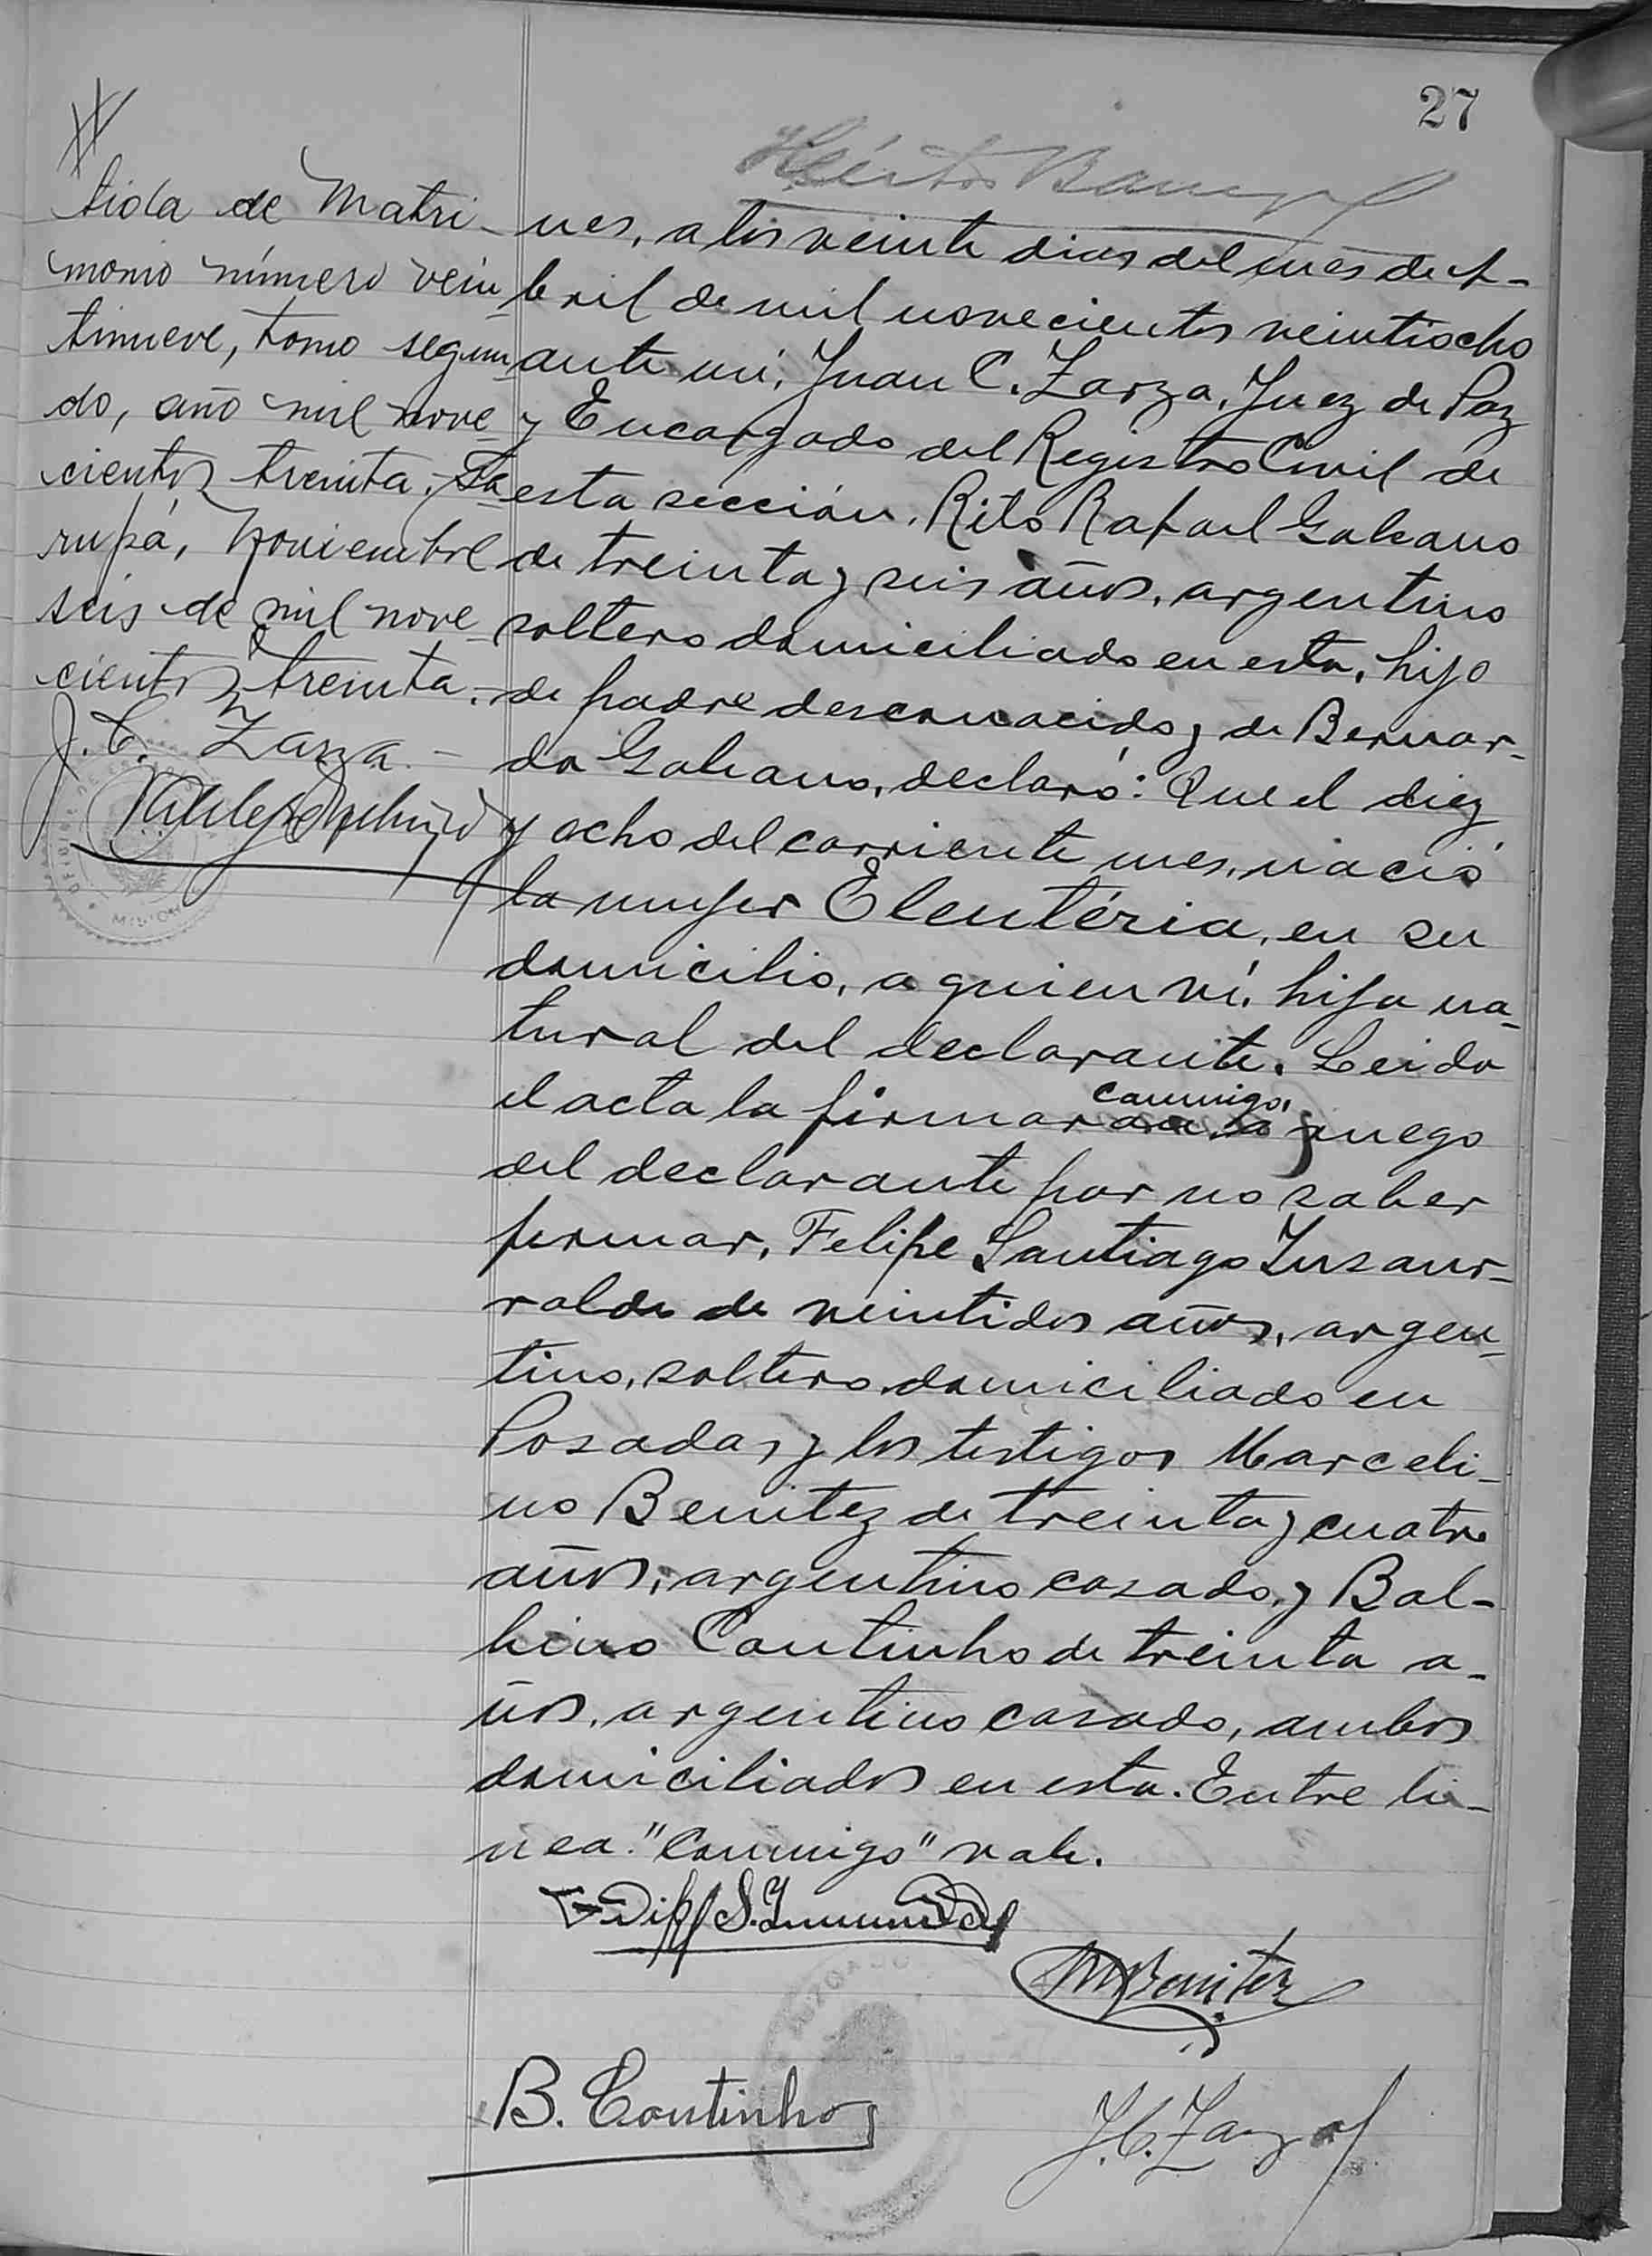 27
tida de Matri-
monio número vein-
tinueve, tomo segun-
do, año mil nove-
cientos treinta. Fa-
rupá, Noviembre
seis de mil nove-
cientos treinta.-
J. C. Zarza.-
nes, a los veinte dias del mes de A-
bril de mil novecientos veintiocho
ante mi, Juan C. Zarza, Juez de Paz
y Encargado del Registro Civil de
esta sección, Rito Rafael Galeano
de treinta y seis años, argentino
soltero domiciliado en esta, hijo
de padre desconocido y de Bernar-
da Galeano, declaró: Que el diez
y ocho del corriente mes, nació
la mujer Eleutéria, en su
domicilio, a quien ví, hija na-
tural del declarante. Leida
el acta la firmaran conmigo, a ruego
del declarante por no saber
firmar, Felipe Santiago Insaur-
ralde de veintidos años, argen-
tino, soltero domiciliado en
Posadas, y los testigos Marceli-
no Benitez de treinta y cuatro
años, argentino casado, y Bal-
bino Coutinho de treinta a-
ños, argentino casado, ambos
domiciliados en esta. Entre li-
nea "Conmigo" vale.
M Benitez
B. Coutinho
J. C. Zarza